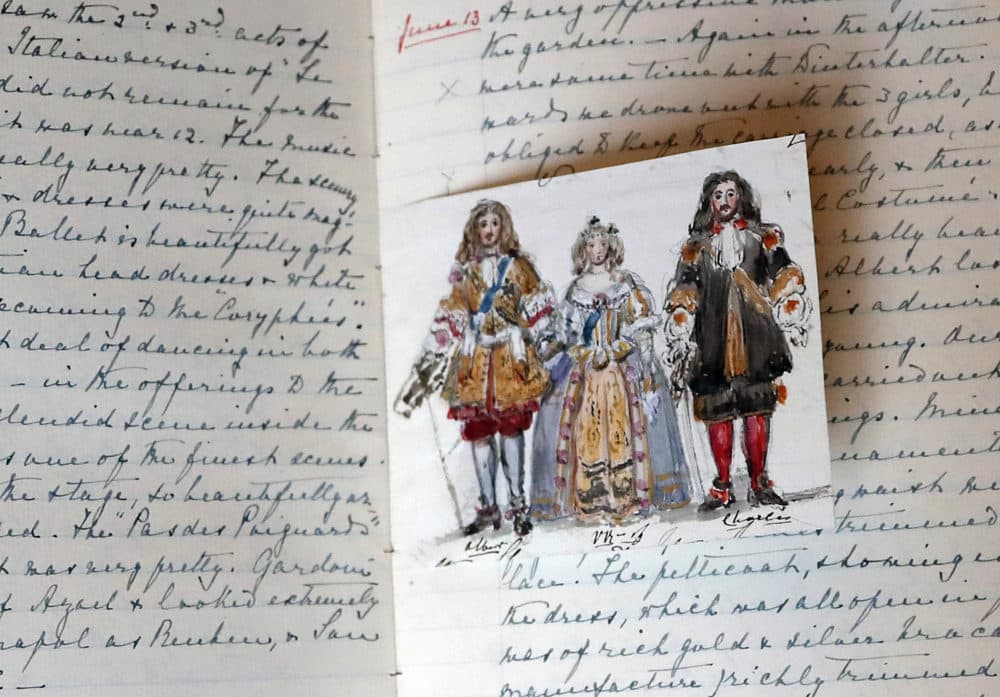 saw the 2nd & 3rd acts of
Italian version of "Le
did not remain for the
it was near 12. The music
very pretty. The scenery
& dresses were quite mag-
Ballet is beautifully got
head dresses & white
becoming to the "Coryphées".
deal of dancing in both
– in the offerings to the
splendid scene inside the
one of the finest scenes
the stage, so beautifully
The "Pas des Poignards"
was very pretty. Gardoni
of Azael & looked extremely
as Reuben, &
June 13 A very oppressive
the garden. – Again in the afternoon
were some time with Winterhalter.
wards we drove out with the 3 girls,
obliged to keep the carriage closed, as
early, & then
Costume
really
Albert
is
young. Our
carried out
waist
Albert
VR
Charles
trimmed
lace. The petticoat, showing
the dress, which was all open in
was of rich gold & silver
manufacture, richly trimmed